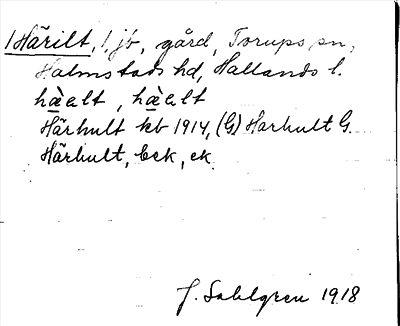 1 Härilt, 1, jb, gård, Torups sn,
Halmstads hd, Hallands l.
hàelt, hàelt
Härhult kb 1914, (G) Harhult G.
Härhult, bek, ek.
J. Sahlgren 1918